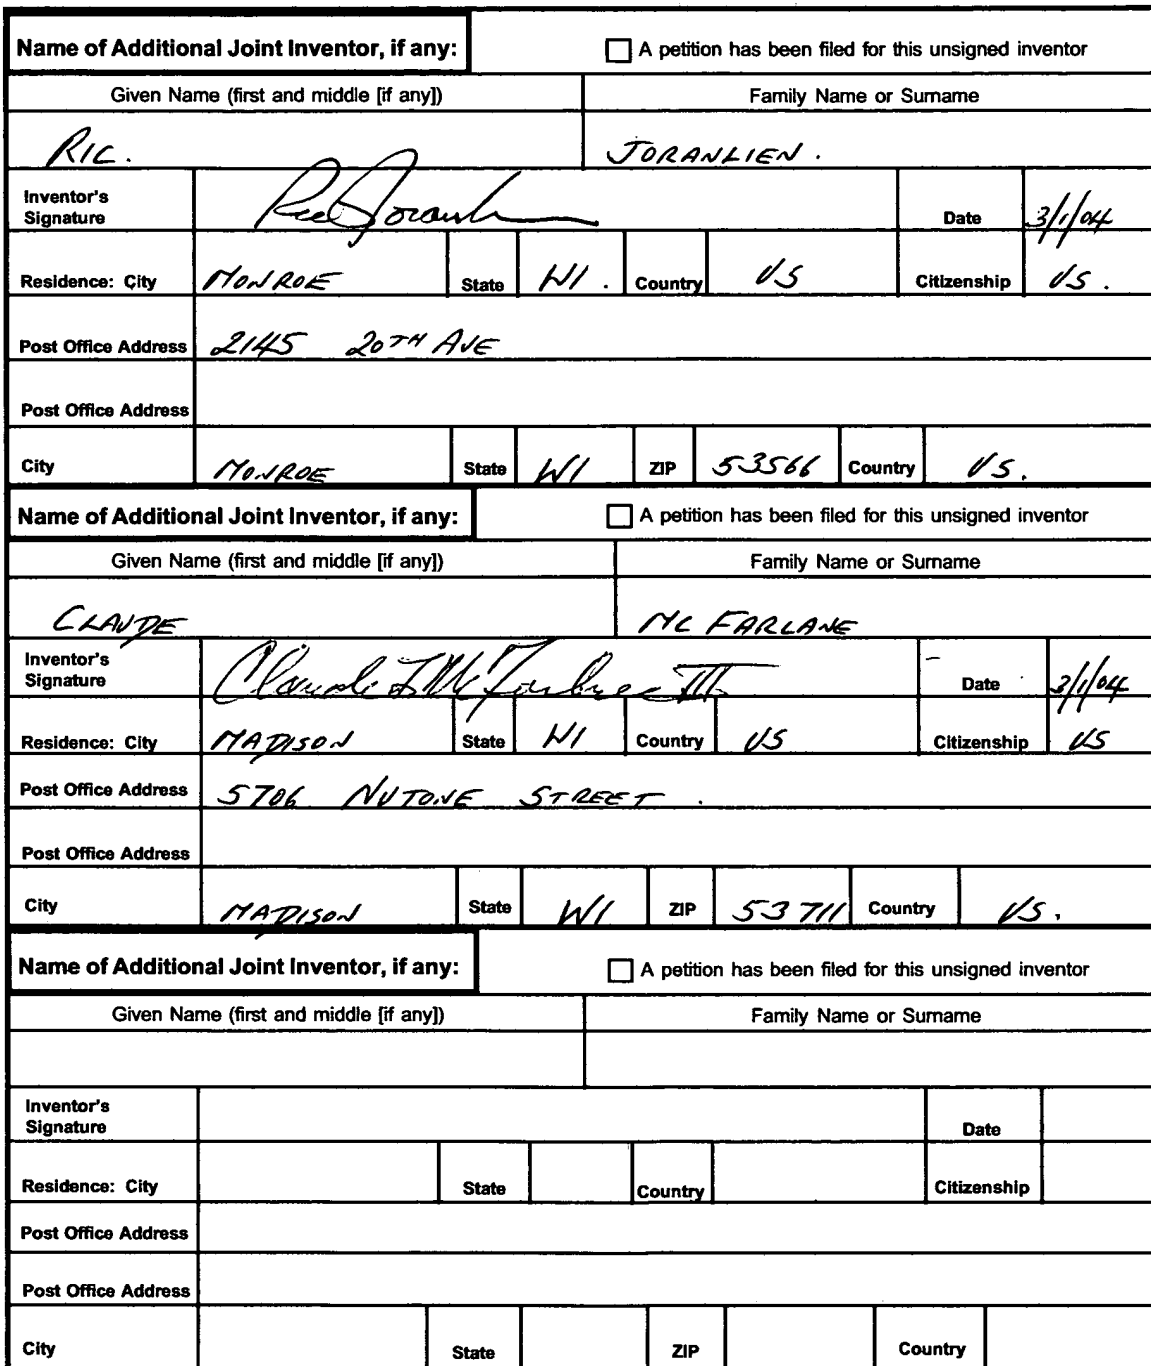 Name of Additional Joint Inventor, if any: A petition has been filed for this unsigned inventor
Given Name (first and middle [if any]) Family Name or Surname
RIC. JORANLIEN.
Inventor's Signature Date 3/1/04
Residence: City MONROE State WI. Country US Citizenship US.
Post Office Address 2145 20TH AVE
Post Office Address
City MONROE State WI ZIP 53566 Country US.
Name of Additional Joint Inventor, if any: A petition has been filed for this unsigned inventor
Given Name (first and middle [if any]) Family Name or Surname
CLAUDE MC FARLANE
Inventor's Signature Claude L McFarlane III Date 3/1/04
Residence: City MADISON State WI Country US Citizenship US
Post Office Address 5706 NUTONE STREET.
Post Office Address
City MADISON State WI ZIP 53711 Country US.
Name of Additional Joint Inventor, if any: A petition has been filed for this unsigned inventor
Given Name (first and middle [if any]) Family Name or Surname
Inventor's Signature Date
Residence: City State Country Citizenship
Post Office Address
Post Office Address
City State ZIP Country